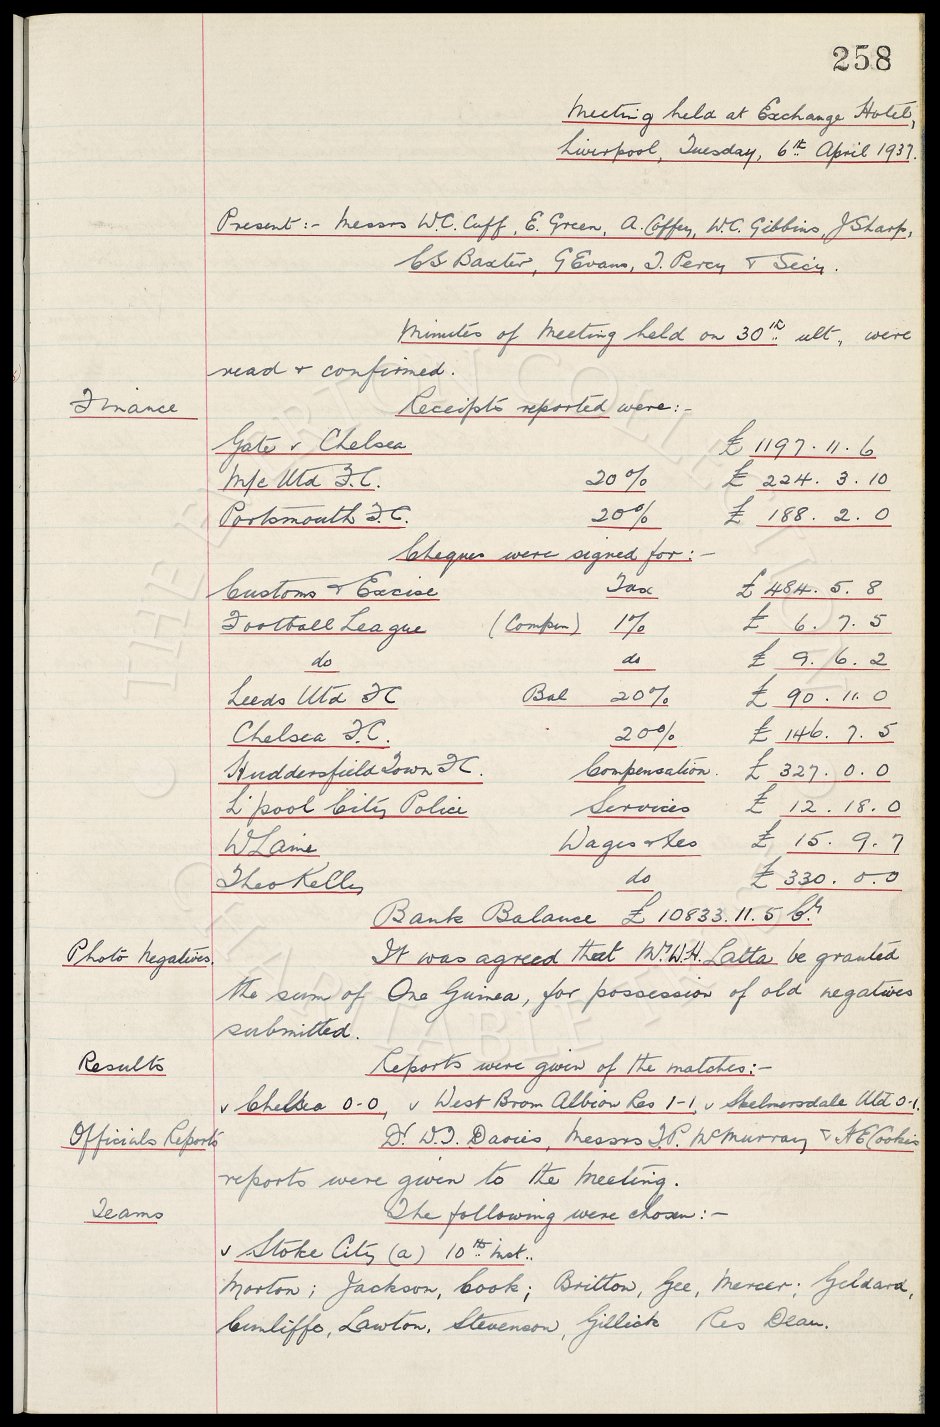 258
Meeting held at Exchange Hotel,
Liverpool, Tuesday, 6th April 1937.
Present :- Messrs W.C. Cuff, E. Green, A. Coffey, W.C. Gibbins, J Sharp,
CS Baxter, G Evans, T. Percy & Secy.
Minutes of Meeting held on 30th ult, were
read & confirmed.
Finance Receipts reported were:-
Gate v Chelsea £ 1197. 11. 6
M/c Utd F.C. 20% £ 224. 3. 10
Portsmouth F.C. 20% £ 188. 2. 0
Cheques were signed for:-
Customs & Excise Tax £ 484. 5. 8
Football League (Compen) 1% £ 6. 7. 5
do do £ 9. 6. 2
Leeds Utd FC Bal 20% £ 90. 11. 0
Chelsea F.C. 20% £ 146. 7. 5
Huddersfield Town FC. Compensation. £ 327. 0. 0
L'pool City Police Services £ 12. 18. 0
W Laine Wages & Tes £ 15. 9. 7
Theo Kelly do £ 330. 0. 0
Bank Balance £ 10833. 11. 5 Cr
Photo Negatives. It was agreed that Mr. W.H. Latta be granted
the sum of One Guinea, for possession of old negatives
submitted.
Results Reports were given of the matches:-
v Chelsea 0-0, v West Brom Albion Res 1-1, v Skelmersdale Utd 0-1.
Officials Reports Dr. D.T. Davies, Messrs T.P. McMurray & H E Cookes
reports were given to the Meeting.
Teams The following were chosen:-
v Stoke City (a) 10th inst.
Morton; Jackson, Cook; Britton, Gee, Mercer; Geldard,
Cunliffe, Lawton, Stevenson, Gillick Res Dean.
© THE EVERTON COLLECTION CHARITABLE TRUST